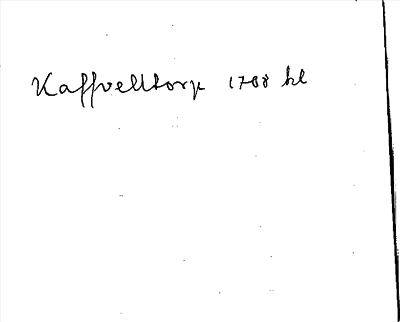 Kaffvelltorp 1788 kl